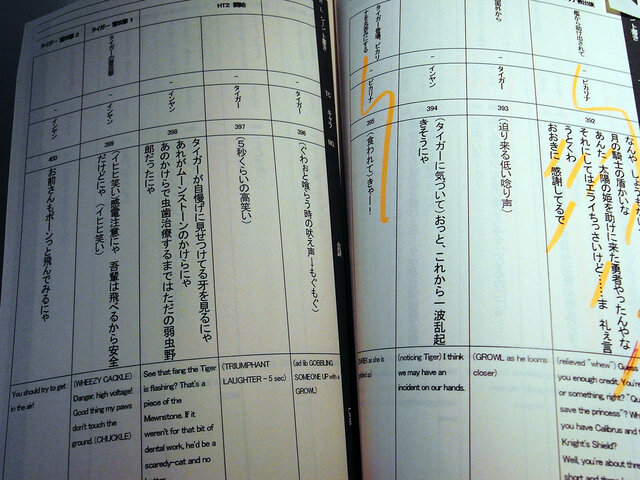 392
なんや、し
月の騎士の盾かいな
あんた、太陽の姫を助けに来た勇者やったんやな
それにしてはエライちっさいけど……ま 礼え言
うとくわ
おおきに 感謝してるで
(relieved "whew") Guess
you enough credit. You're
or something, right? "Qu
save the princess"? Wh
you have Calibrus and t
Knight's Shield?
Well, you're about thre
タイガー
393
(迫り来る低い唸り声)
(GROWL as he looms
closer)
インヤン
394
(タイガーに気づいて)おっと、これから一波乱起
きそうにゃ
(noticing Tiger) I think
we may have an
incident on our hands.
ピカリナ
395
(食われて)きゃー!
as she is
タイガー
396
(ぐわぉと喰らう時の吠え声→もぐもぐ)
(ad lib GOBBLING
SOMEONE UP with a
GROWL)
タイガー
397
(5秒くらいの高笑い)
(TRIUMPHANT
LAUGHTER - 5 sec)
インヤン
398
タイガーが自慢げに見せつけてる牙を見るにゃ
あれがムーンストーンのかけらにゃ
あのかけらで虫歯治療するまではただの弱虫野
郎だったにゃ
See that fang the Tiger
is flashing? That's a
piece of the
Mewnstone. If it
weren't for that bit of
dental work, he'd be a
scaredy-cat and no
インヤン
399
(イヒヒ笑い)感電注意にゃ 吾輩は飛べるから安全
だけどにゃ (イヒヒ笑い)
(WHEEZY CACKLE)
Danger, high voltage!
Good thing my paws
don't touch the
ground. (CHUCKLE)
インヤン
400
お前さんもポーンっと飛んでみるにゃ
You should try to get
in the air!
HT2 開始